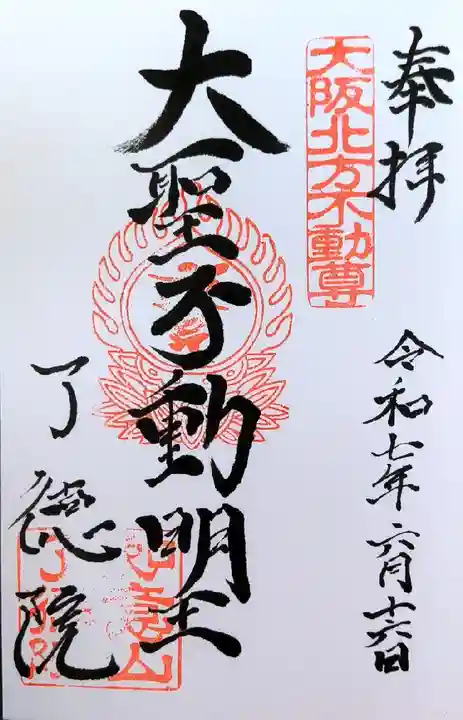 奉拝
大阪北方不動尊
令和七年六月十六日
大聖不動明王
了徳院